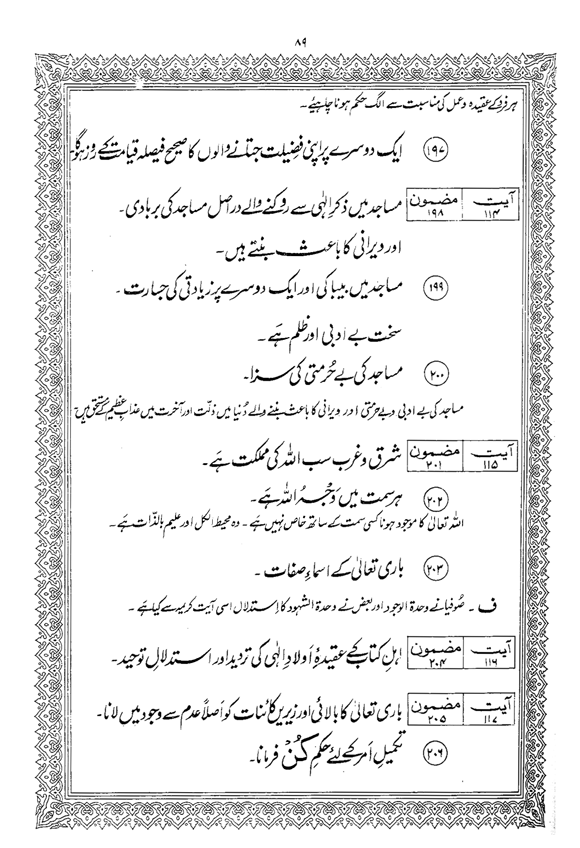 ۸۹
ہر فرد کے عقیدہ و عمل کی مناسبت سے الگ حکم ہونا چاہیئے۔
(۱۹۷) ایک دوسرے پر اپنی فضیلت جتانے والوں کا صحیح فیصلہ قیامت کے روز ہوگا۔
آیت ۱۱۴ مضمون ۱۹۸ مساجد میں ذکرِ الٰہی سے روکنے والے دراصل مساجد کی بربادی۔
اور ویرانی کا باعث بنتے ہیں۔
(۱۹۹) مساجد میں بیباکی اور ایک دوسرے پر زیادتی کی جسارت۔
سخت بے ادبی اور ظلم ہے۔
(۲۰۰) مساجد کی بے حُرمتی کی سزا۔
مساجد کی بے ادبی و بے حرمتی اور ویرانی کا باعث بننے والے دُنیا میں ذلت اور آخرت میں عذابِ عظیم کے مستحق ہیں
آیت ۱۱۵ مضمون ۲۰۱ شرق و غرب سب اللہ کی مملکت ہے۔
(۲۰۲) ہر سمت میں وَجْہُ اللہ ہے۔
اللہ تعالیٰ کا موجود ہونا کسی سمت کے ساتھ خاص نہیں ہے۔ وہ محیط الکل اور علیم بالذات ہے۔
(۲۰۳) باری تعالیٰ کے اسماءِ صفات۔
ف۔ صُوفیا نے وحدۃ الوجود اور بعض نے وحدۃ الشہود کا استدلال اسی آیت کریمہ سے کیا ہے۔
آیت ۱۱۶ مضمون ۲۰۴ اہلِ کتاب کے عقیدۂ اَولادِ الٰہی کی تردید اور استدلالِ توحید۔
آیت ۱۱۷ مضمون ۲۰۵ باری تعالیٰ کا بالائی اور زیریں کائنات کو اصلاً عدم سے وجود میں لانا۔
(۲۰۶) تکمیلِ اَمر کے لئے حکمِ کُنْ فرمانا۔